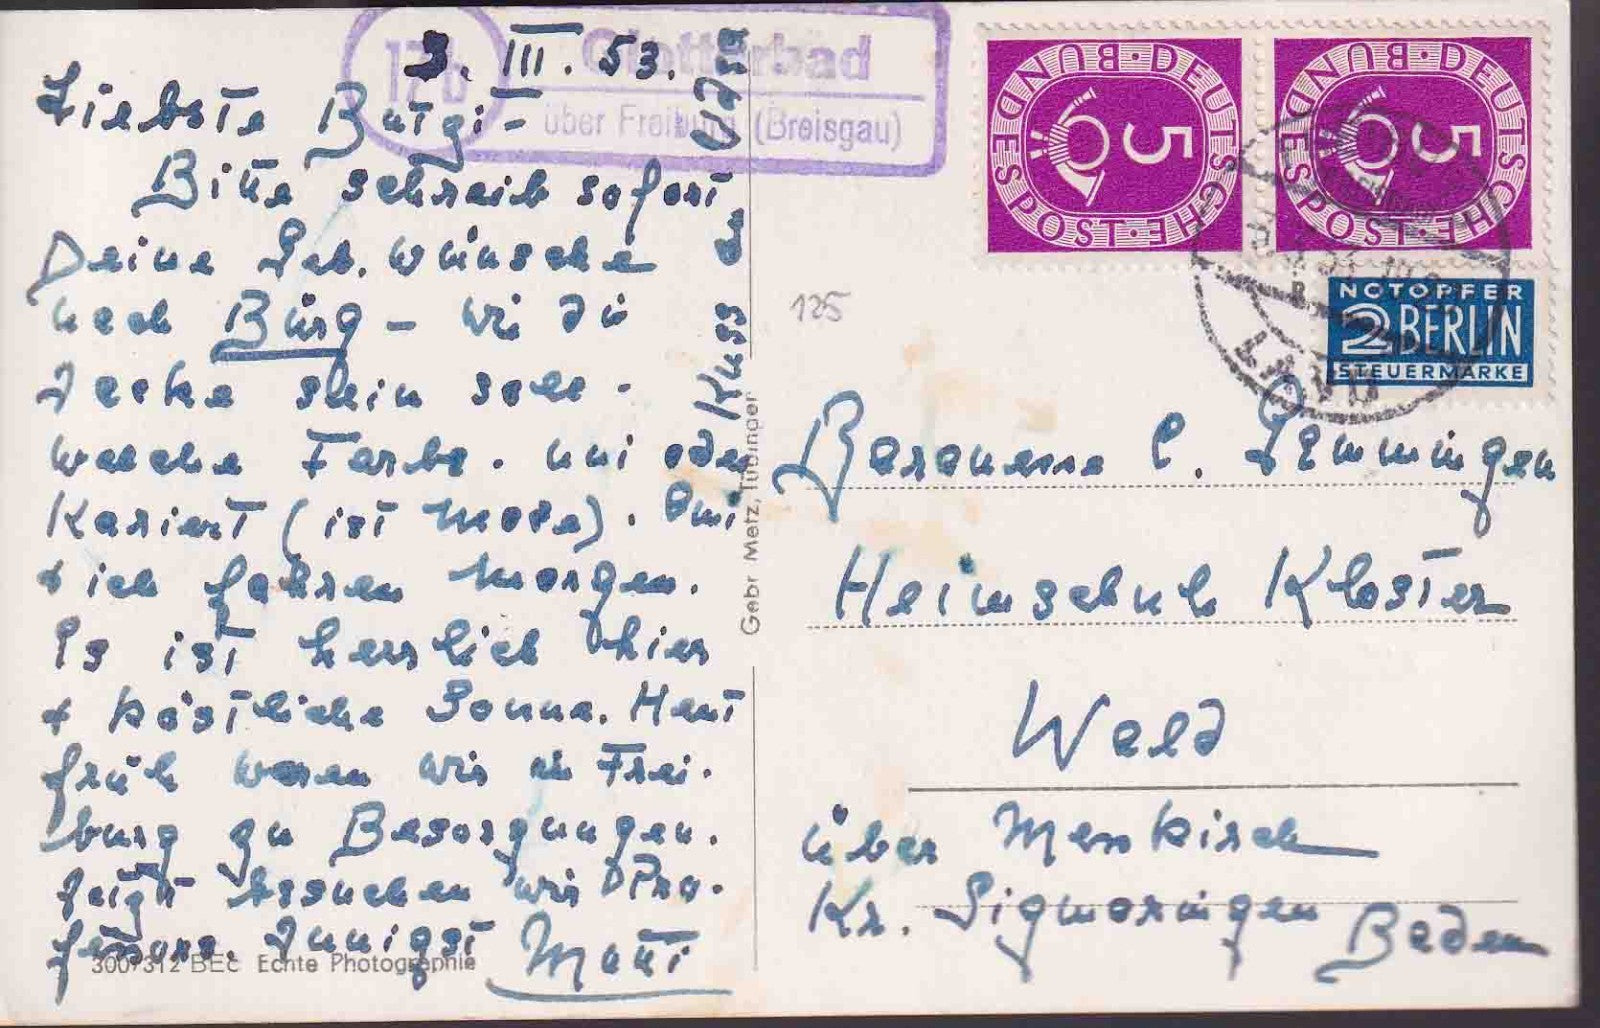 3. III. 53.
Liebste Burgi -
Bitte schreib sofort
Deine Geb. wünsche
nach Bürg - wie die
Jacke sein soll -
welche Farbe. uni oder
Kariert (ist Mode). Omi
+ ich fahren morgen.
Es ist herrlich hier
+ köstliche Sonne. Heut
früh waren wir in Frei-
burg zu Besorgungen.
Jetzt besuchen wir Pro-
fessors. Innigst Mutti
Kuss
17b
Glotterbad
über Freiburg (Breisgau)
DEUTSCHE BUNDESPOST
5
DEUTSCHE BUNDESPOST
5
NOTOPFER
2 BERLIN
STEUERMARKE
LAND
125
Baronesse C. Gemmingen
Heimschule Kloster
Wald
über Messkirch
Kr. Sigmaringen
Baden
Gebr Metz, Tübingen
300/312 BEc Echte Photographie